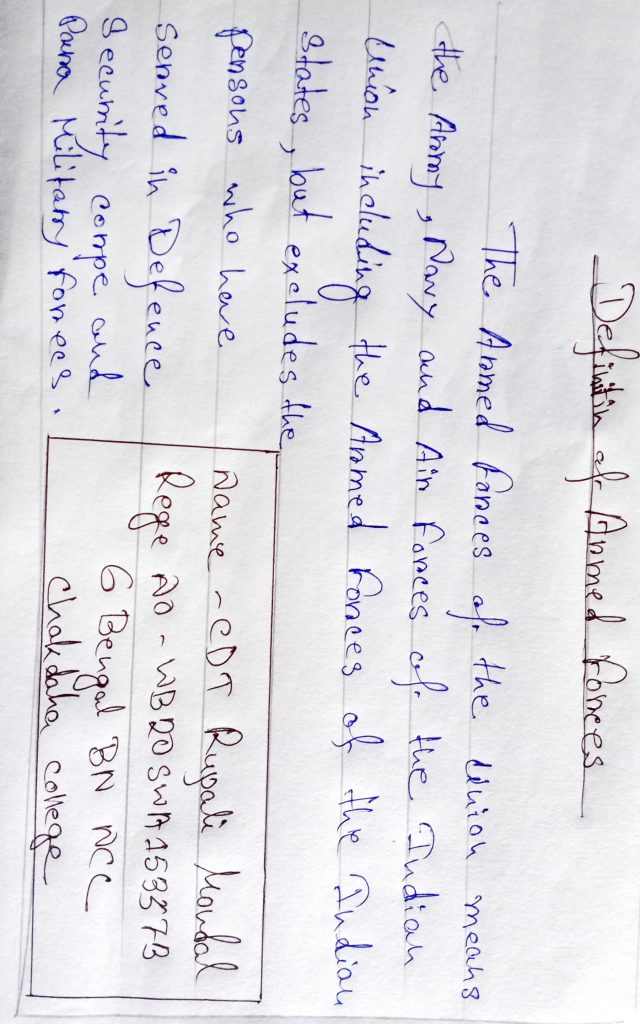 Definitin of Armed Forces
The Armed Forces of the Union means
the Army, Navy and Air Forces of the Indian
Union including the Armed Forces of the Indian
States, but excludes the
persons who have
served in Defence
Security corpe and
Para Military forces.
Name - CDT Rupali Mondal
Rege No - WB20SWA153573
6 Bengal BN NCC
Chakdaha College